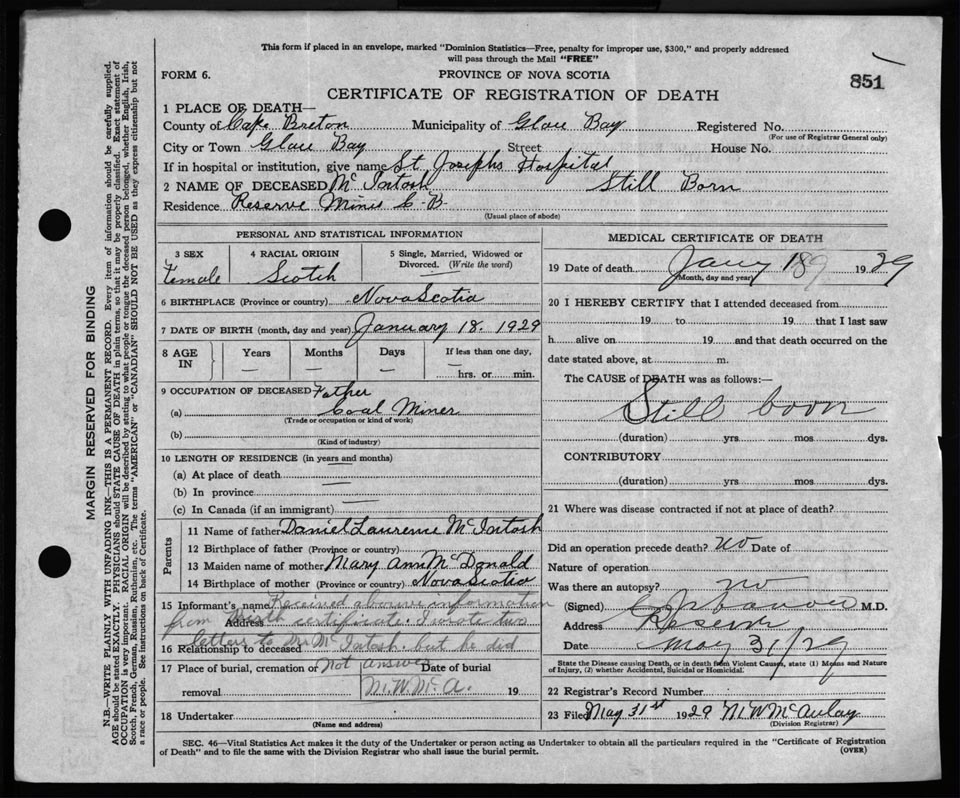 This form if placed in an envelope, marked "Dominion Statistics—Free, penalty for improper use, $300," and properly addressed
will pass through the Mail "FREE"
FORM 6.
PROVINCE OF NOVA SCOTIA
851
CERTIFICATE OF REGISTRATION OF DEATH
1 PLACE OF DEATH—
County of Cape Breton Municipality of Glace Bay Registered No.
(For use of Registrar General only)
City or Town Glace Bay Street House No.
If in hospital or institution, give name St. Josephs Hospital
2 NAME OF DECEASED McIntosh Still Born
Residence Reserve Mines C-B-
(Usual place of abode)
PERSONAL AND STATISTICAL INFORMATION
3 SEX
Female
4 RACIAL ORIGIN
Scotch
5 Single, Married, Widowed or
Divorced. (Write the word)
6 BIRTHPLACE (Province or country) Nova Scotia
7 DATE OF BIRTH (month, day and year) January 18. 1929
8 AGE IN Years Months Days If less than one day,
hrs. or min.
9 OCCUPATION OF DECEASED Father
(a) Coal Miner
(Trade or occupation or kind of work)
(b)
(Kind of industry)
10 LENGTH OF RESIDENCE (in years and months)
(a) At place of death
(b) In province
(c) In Canada (if an immigrant)
Parents
11 Name of father Daniel Laurence McIntosh
12 Birthplace of father (Province or country)
13 Maiden name of mother Mary Ann McDonald
14 Birthplace of mother (Province or country) Nova Scotia
15 Informant's name Received above information
Address from Birth certificate. I wrote two
16 Relationship to deceased letters to Mr McIntosh. but he did
17 Place of burial, cremation or not answer Date of burial
removal M.W.McA. 19
18 Undertaker
(Name and address)
MEDICAL CERTIFICATE OF DEATH
19 Date of death Jany 18 1929
(Month, day and year)
20 I HEREBY CERTIFY that I attended deceased from
19 to 19 that I last saw
h alive on 19 and that death occurred on the
date stated above, at m.
The CAUSE of DEATH was as follows:—
Still born
(duration) yrs. mos dys.
CONTRIBUTORY
(duration) yrs. mos. dys.
21 Where was disease contracted if not at place of death?
Did an operation precede death? no Date of
Nature of operation
Was there an autopsy? no
(Signed) M.D.
Address Reserve
Date May 31/29
State the Disease causing Death, or in death from Violent Causes, state (1) Means and Nature
of Injury, (2) whether Accidental, Suicidal or Homicidal.
22 Registrar's Record Number
23 Filed May 31st 1929 M W McAulay
(Division Registrar)
SEC. 46—Vital Statistics Act makes it the duty of the Undertaker or person acting as Undertaker to obtain all the particulars required in the "Certificate of Registration
of Death" and to file the same with the Division Registrar who shall issue the burial permit.
(OVER)
MARGIN RESERVED FOR BINDING
N.B.—WRITE PLAINLY WITH UNFADING INK—THIS IS A PERMANENT RECORD. Every item of information should be carefully supplied.
AGE should be stated EXACTLY. PHYSICIANS should STATE CAUSE OF DEATH in plain terms, so that it may be properly classified. Exact statement of
OCCUPATION is very important. RACIAL ORIGIN will be described by stating to what people or tongue the deceased person belonged, whether English, Irish,
Scotch, French, German, Russian, Ruthenian, etc. The terms "AMERICAN" or "CANADIAN" SHOULD NOT BE USED as they express citizenship but not
a race or people. See instructions on back of Certificate.